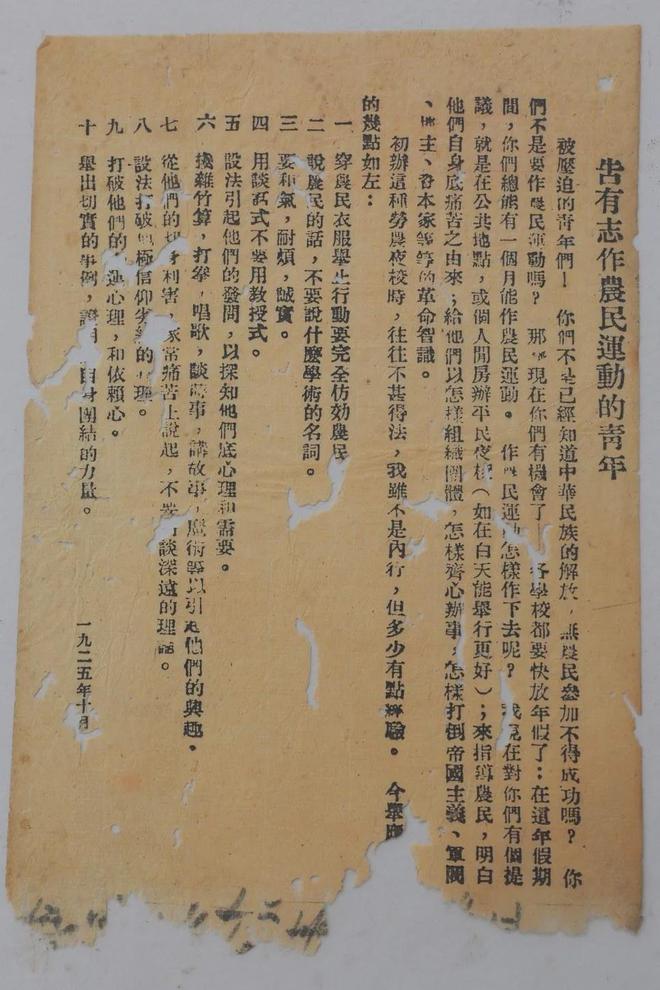 告有志作農民運動的青年
被壓迫的青年們！　你們不是已經知道中華民族的解放，無農民參加不得成功嗎？　你
們不是要作農民運動嗎？　那 現在你們有機會了 各學校都要快放年假了：在這年假期
間，你們總能有一個月能作農民運動。　作農民運動怎樣作下去呢？　我現在對你們有個提
議，就是在公共地點，或個人閒房辦平民夜校（如在白天能舉行更好）；來指導農民，明白
他們自身底痛苦之由來；給他們以怎樣組織團體，怎樣齊心辦事，怎樣打倒帝國主義、軍閥
、地主、資本家等等的革命智識。
初辦這種勞農夜校時，往往不甚得法，我雖不是內行，但多少有點經驗。　今舉
的幾點如左：
一　穿農民衣服舉止行動要完全仿効農民
二　說農民的話，不要說什麼學術的名詞。
三　要和氣，耐煩，誠實。
四　用談話式不要用教授式。
五　設法引起他們的發問，以探知他們底心理和需要。
六　擾雜竹算，打拳，唱歌，談 事，講故事，魔術等以引起他們的興趣。
七　從他們的切身利害，家常痛苦上說起，不要 談深遠的理論。
八　設法打破他極信仰 的心理。
九　打破他們的 運心理，和依賴心。
十　舉出切實的事例，證明 自身團結的力量。
一九二五年十月